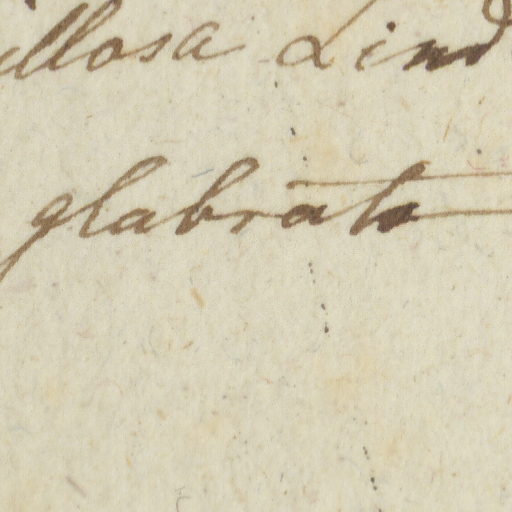 illosa Lind
glabrata